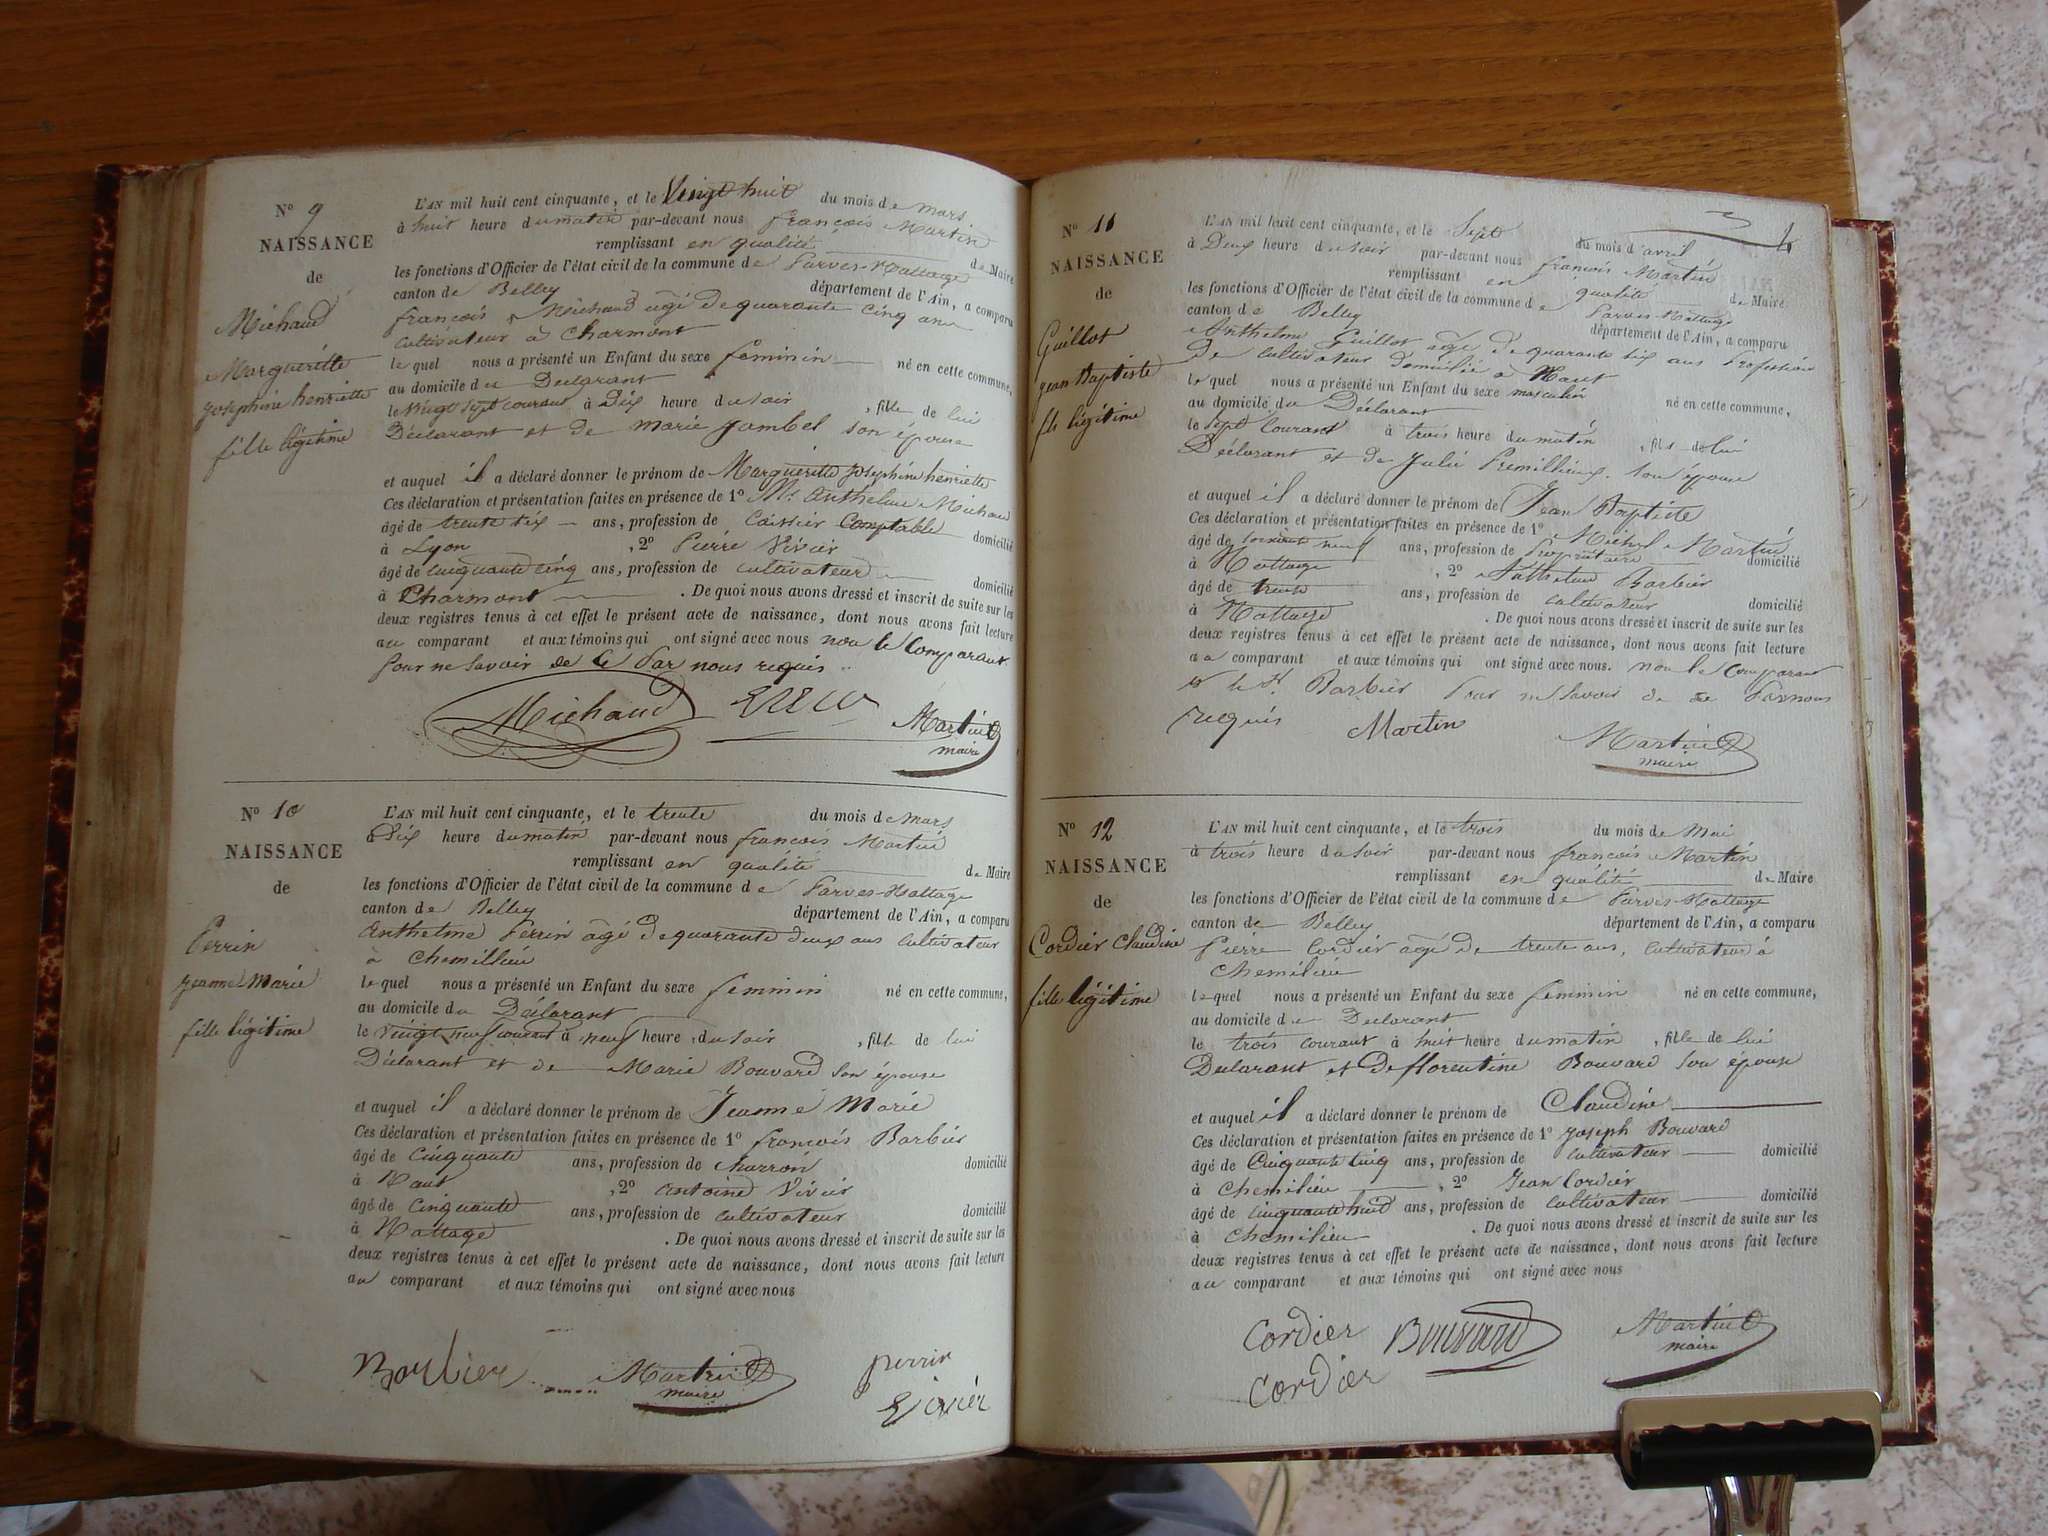 N° 9
NAISSANCE
de
Michaud
Margueritte
Josephine henriette
fille légitime
L'AN mil huit cent cinquante, et le Vingt huit du mois de mars
à huit heure du matin par-devant nous françois Martin
remplissant en qualité de Maire
les fonctions d'Officier de l'état civil de la commune de Parves-Nattage
canton de Belley département de l'Ain, a comparu
françois Michaud agé de quarante cinq ans
cultivateur à Charmont
le quel nous a présenté un Enfant du sexe feminin né en cette commune,
au domicile du Declarant
le Vingt sept courant à Dix heure du soir, fille de lui
Déclarant et de marie Jambel son épouse
et auquel il a déclaré donner le prénom de Margueritte Josephine henriette
Ces déclaration et présentation faites en présence de 1° Mr Anthelme Michaud
âgé de trente six ans, profession de Caissier Comptable domicilié
à Lyon, 2° Pierre Vivier
âgé de cinquante cinq ans, profession de cultivateur domicilié
à Charmont. De quoi nous avons dressé et inscrit de suite sur les
deux registres tenus à cet effet le présent acte de naissance, dont nous avons fait lecture
au comparant et aux témoins qui ont signé avec nous non le Comparant
pour ne savoir de ce par nous requis
Michaud Martin
maire
N° 10
NAISSANCE
de
Perrin
jeanne Marie
fille légitime
L'AN mil huit cent cinquante, et le trente du mois de mars
à Dix heure du matin par-devant nous françois Martin
remplissant en qualité de Maire
les fonctions d'Officier de l'état civil de la commune de Parves-Nattage
canton de Belley département de l'Ain, a comparu
Anthelme Perrin agé de quarante deux ans cultivateur
à Chemillieu
le quel nous a présenté un Enfant du sexe feminin né en cette commune,
au domicile du Déclarant
le vingt neuf courant à neuf heure du soir, fille de lui
Déclarant et de Marie Bouvard son épouse
et auquel il a déclaré donner le prénom de Jeanne Marie
Ces déclaration et présentation faites en présence de 1° françois Barbier
âgé de cinquante ans, profession de charron domicilié
à Nant, 2° antoine Vivier
âgé de cinquante ans, profession de cultivateur domicilié
à Nattage. De quoi nous avons dressé et inscrit de suite sur les
deux registres tenus à cet effet le présent acte de naissance, dont nous avons fait lecture
au comparant et aux témoins qui ont signé avec nous
Barbier Martin perrin
maire Vivier
N° 11
NAISSANCE
de
Guillot
jean Baptiste
fils légitime
L'AN mil huit cent cinquante, et le Sept du mois d'avril
à Deux heure du soir par-devant nous françois Martin
remplissant en qualité de Maire
les fonctions d'Officier de l'état civil de la commune de Parves-Nattage
canton de Belley département de l'Ain, a comparu
Anthelme Guillot agé de quarante six ans Profession
de cultivateur domicilié à Nant
le quel nous a présenté un Enfant du sexe masculin né en cette commune,
au domicile du Déclarant
le sept Courant à trois heure du matin, fils de lui
Déclarant et de Julie Premillieux son épouse
et auquel il a déclaré donner le prénom de Jean Baptiste
Ces déclaration et présentation faites en présence de 1° Michel Martin
âgé de soixante neuf ans, profession de Propriétaire domicilié
à Nattage, 2° Anthelme Barbier
âgé de trente ans, profession de cultivateur domicilié
à Nattage. De quoi nous avons dressé et inscrit de suite sur les
deux registres tenus à cet effet le présent acte de naissance, dont nous avons fait lecture
au comparant et aux témoins qui ont signé avec nous. non le Comparant
et le Barbier pour ne savoir de ce par nous
requis Martin Martin
maire
N° 12
NAISSANCE
de
Cordier Claudine
fille légitime
L'AN mil huit cent cinquante, et le trois du mois de Mai
à trois heure du soir par-devant nous françois Martin
remplissant en qualité de Maire
les fonctions d'Officier de l'état civil de la commune de Parves-Nattage
canton de Belley département de l'Ain, a comparu
Pierre Cordier agé de trente ans, cultivateur à
Chemilieu
le quel nous a présenté un Enfant du sexe feminin né en cette commune,
au domicile du Declarant
le trois courant à huit heure du matin, fille de lui
Declarant et de florentine Bouvard son épouse
et auquel il a déclaré donner le prénom de Claudine
Ces déclaration et présentation faites en présence de 1° Joseph Bouvard
âgé de Cinquante cinq ans, profession de cultivateur domicilié
à Chemilieu, 2° Jean Cordier
âgé de cinquante huit ans, profession de cultivateur domicilié
à Chemilieu. De quoi nous avons dressé et inscrit de suite sur les
deux registres tenus à cet effet le présent acte de naissance, dont nous avons fait lecture
au comparant et aux témoins qui ont signé avec nous
Cordier Bouvard Martin
Cordier maire